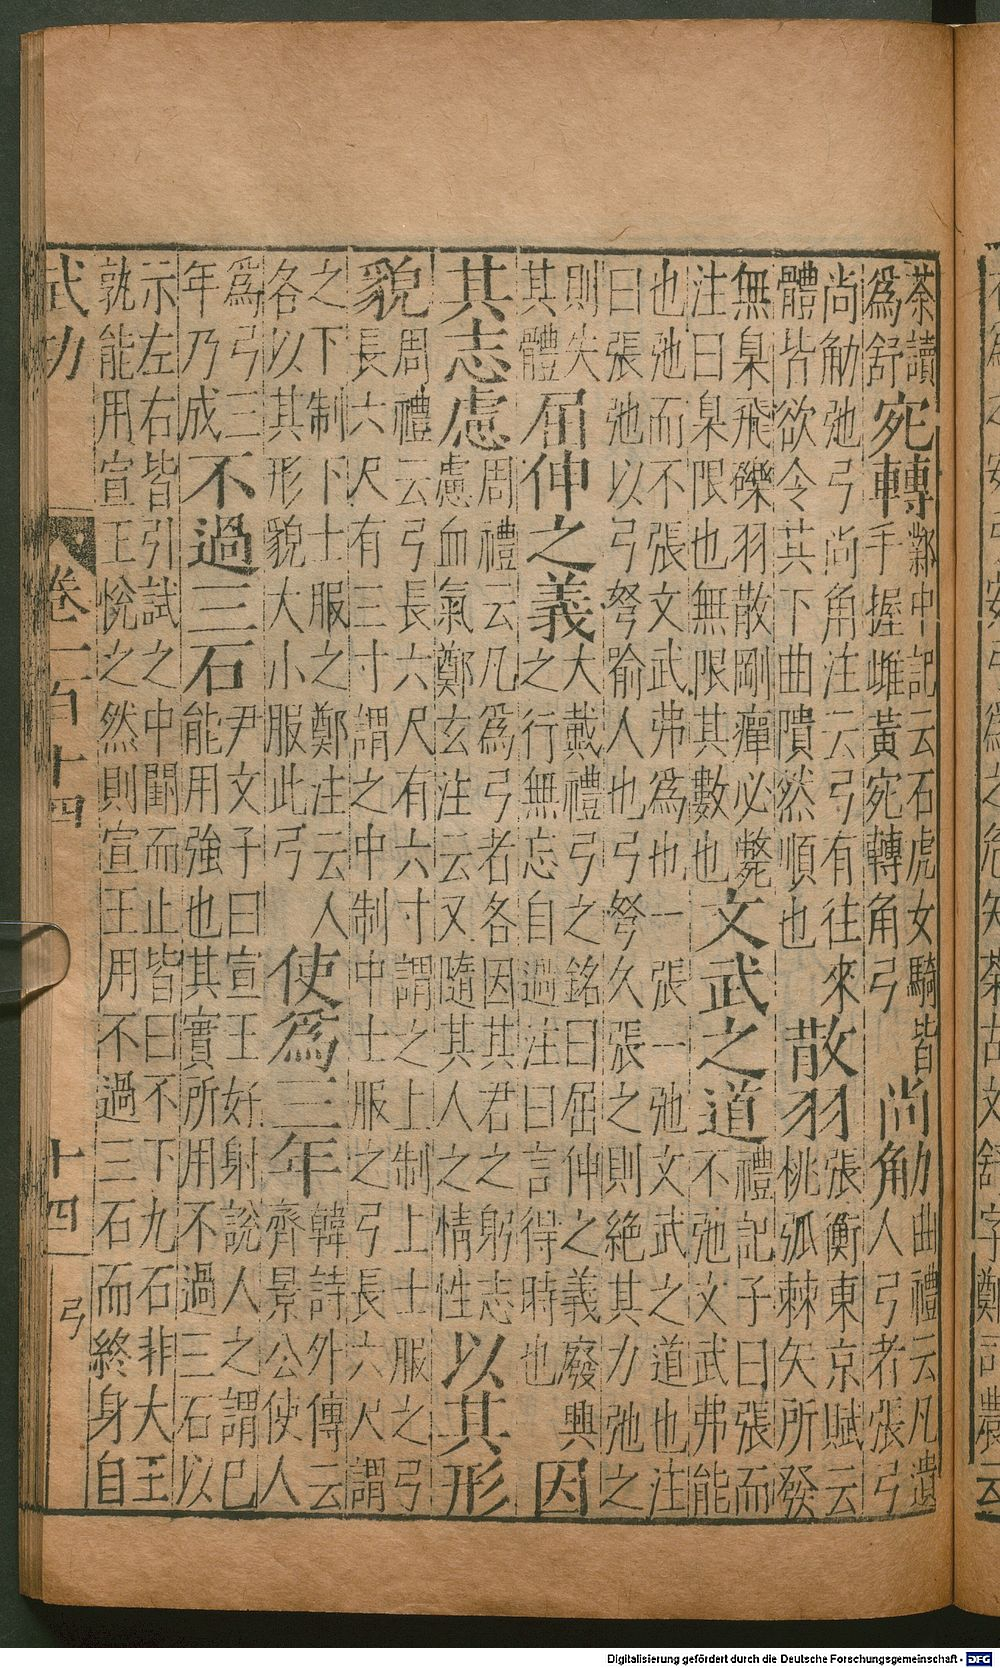 荼讀
為舒
宛轉
鄴中記云石虎女騎皆
手握雌黃宛轉角弓
尚觔
曲禮云凡遺
人弓者張弓
尚觔弛弓尚角注云弓有往來
體皆欲令其下曲隤然順也
散羽
張衡東京賦云
桃弧棘矢所發
無臬飛礫羽散剛癉必斃
注曰臬限也無限其數也
文武之道
禮記子曰張而
不弛文武弗能
也弛而不張文武弗為也一張一弛文武之道也注
曰張弛以弓弩喻人也弓弩久張之則絕其力弛之
則失
其體
屈伸之義
大戴禮弓之銘曰屈伸之義廢興
之行無忘自過注曰言得時也
因
其志慮
周禮云凡為弓者各因其君之躬志
慮血氣鄭玄注云又隨其人之情性
以其形
貌
周禮云弓長六尺有六寸謂之上制上士服之弓
長六尺有三寸謂之中制中士服之弓長六尺謂
之下制下士服之鄭注云人
各以其形貌大小服此弓
使為三年
韓詩外傳云
齊景公使人
為弓三
年乃成
不過三石
尹文子曰宣王好射說人之謂已
能用強也其實所用不過三石以
示左右皆引試之中關而止皆曰不下九石非大王
孰能用宣王悅之然則宣王用不過三石而終身自
武功
卷一百十四
十四
弓
Digitalisierung gefördert durch die Deutsche Forschungsgemeinschaft - DFG